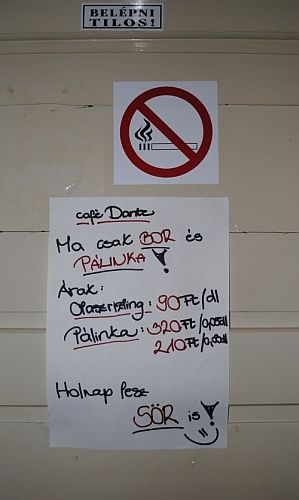 BELÉPNI
TILOS!
café Dante
Ma csak BOR és
PÁLINKA!
Árak:
Olaszrizling: 90 Ft/dl
Pálinka: 320 Ft/0,05dl
210 Ft/0,03dl
Holnap lesz
SÖR is!